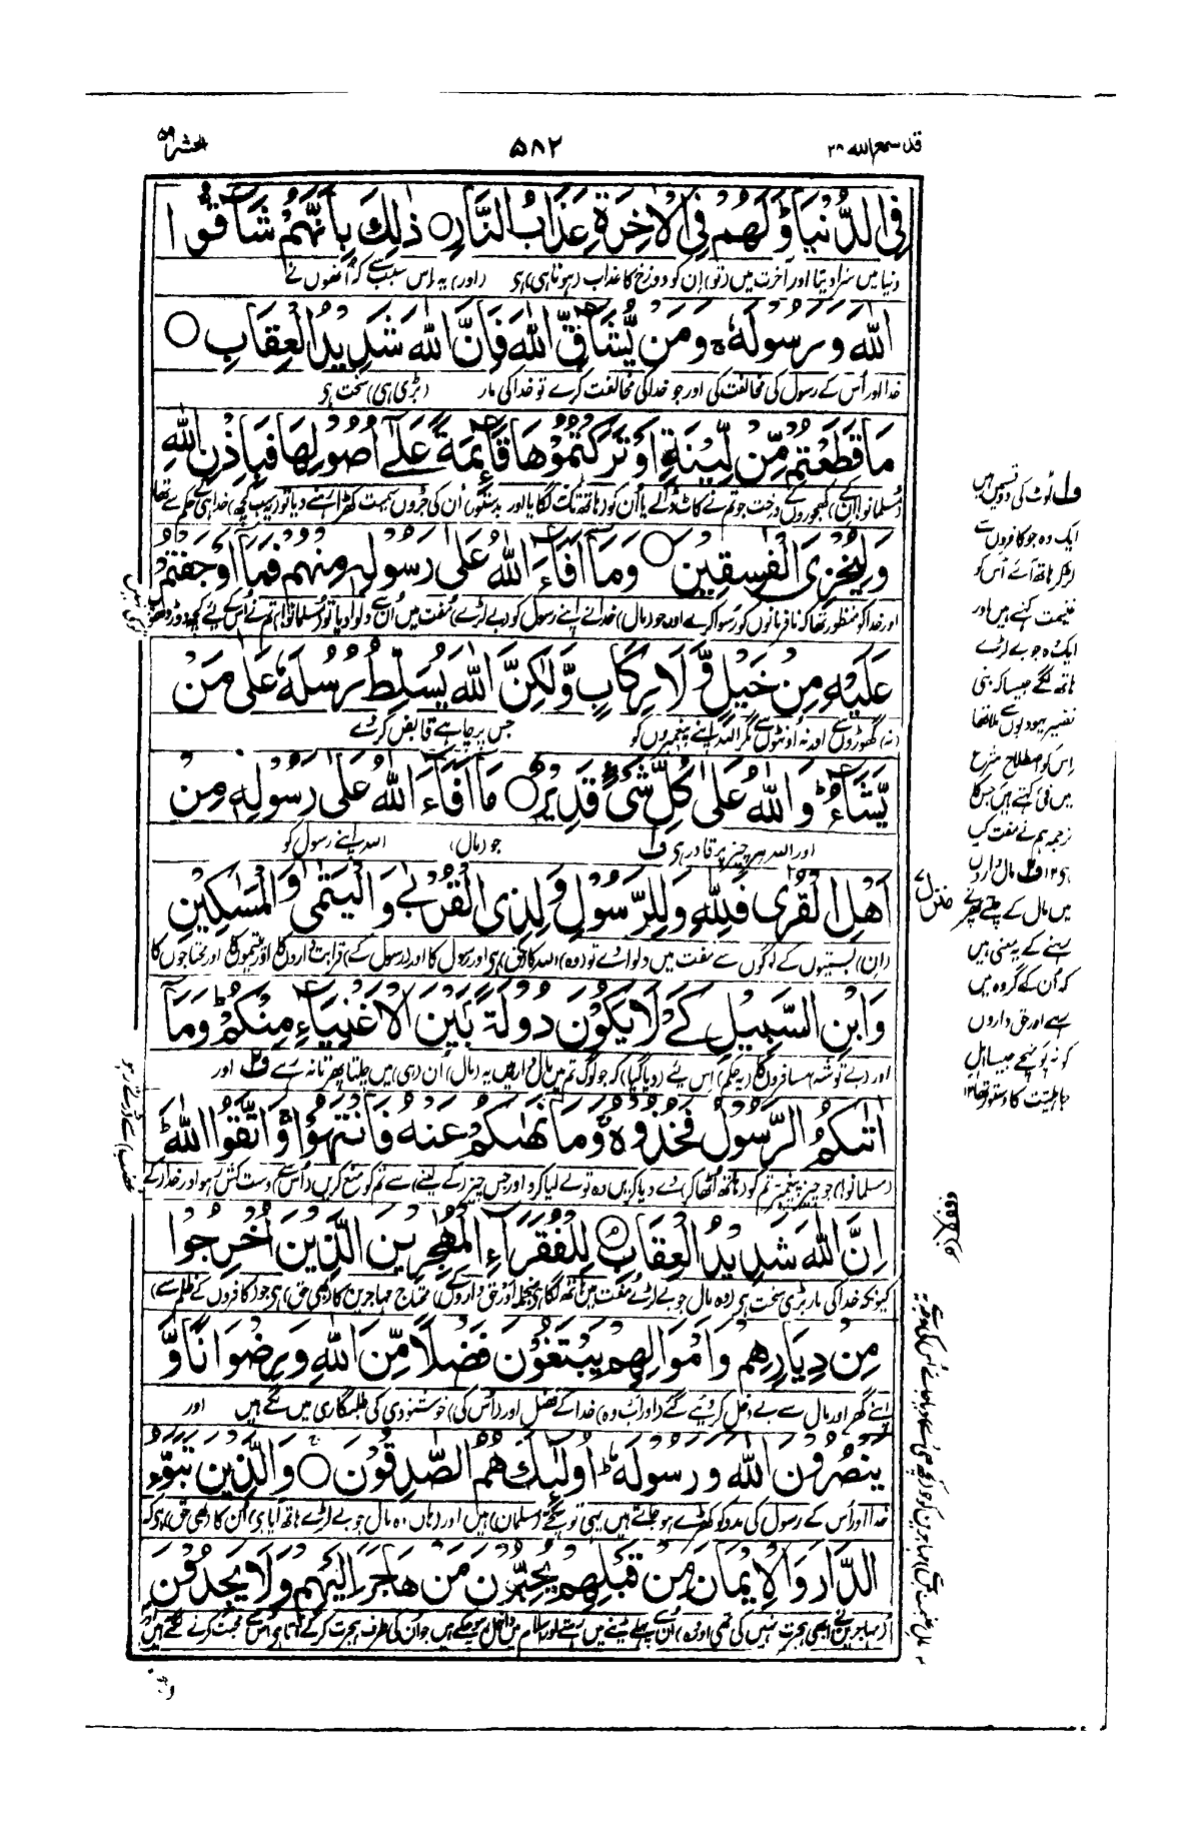 قد سمع الله ۲۸
۵۸۲
الحشر ۵۹
فِي الدُّنْيَا ؕ وَلَهُمْ فِي الْاٰخِرَةِ عَذَابُ النَّارِ ○ ذٰلِكَ بِاَنَّهُمْ شَآقُّوا
دنیا میں سزا دیتا اور آخرت میں (تو) ان کو دوزخ کا عذاب (ہونا ہی) ہی (اور) یہ اس سبب سے کہ اُنھوں نے
اللّٰهَ وَرَسُوْلَهٗ ۚ وَمَنْ يُّشَآقِّ اللّٰهَ فَاِنَّ اللّٰهَ شَدِيْدُ الْعِقَابِ ○
خدا اور اُس کے رسول کی مخالفت کی اور جو خدا کی مخالفت کرے تو خدا کی مار (بڑی ہی) سخت ہی
مَا قَطَعْتُمْ مِّنْ لِّيْنَةٍ اَوْ تَرَكْتُمُوْهَا قَآئِمَةً عَلٰٓى اُصُوْلِهَا فَبِاِذْنِ اللّٰهِ
(مسلمانو! ان کے) کھجوروں کے درخت جو تم نے کاٹ ڈالے یا اُن کو (ہاتھ تک نہ لگایا اور) بدستور اُن کی جڑوں سمیت کھڑا رہنے دیا تو (یہ سب کچھ) خدا ہی کے حکم سے تھا
وَلِيُخْزِيَ الْفٰسِقِيْنَ ○ وَمَآ اَفَآءَ اللّٰهُ عَلٰى رَسُوْلِهٖ مِنْهُمْ فَمَآ اَوْجَفْتُمْ
اور خدا کو منظور تھا کہ نافرمانوں کو رسوا کرے اور جو (مال) خدا نے اپنے رسول کو (بے لڑے) مفت میں اُن سے دلوا دیا تو (مسلمانو!) تم نے اُس کے لیے کچھ دوڑ دھوپ
عَلَيْهِ مِنْ خَيْلٍ وَّلَا رِكَابٍ وَّلٰكِنَّ اللّٰهَ يُسَلِّطُ رُسُلَهٗ عَلٰى مَنْ
(نہ) گھوڑوں سے اور نہ اونٹوں سے مگر اللہ اپنے پیغمبروں کو جس پر چاہے قابض کر دے
يَّشَآءُ ؕ وَاللّٰهُ عَلٰى كُلِّ شَيْءٍ قَدِيْرٌ ○ مَآ اَفَآءَ اللّٰهُ عَلٰى رَسُوْلِهٖ مِنْ
اور اللہ ہر چیز پر قادر ہی ف۱ جو (مال) اللہ اپنے رسول کو
اَهْلِ الْقُرٰى فَلِلّٰهِ وَلِلرَّسُوْلِ وَلِذِي الْقُرْبٰى وَالْيَتٰمٰى وَالْمَسٰكِيْنِ
(ان) بستیوں کے لوگوں سے مفت میں دلوا دے تو (وہ) اللہ کا (حق) ہی اور رسول کا اور (رسول کے) قرابت داروں کا اور یتیموں کا اور محتاجوں کا
وَابْنِ السَّبِيْلِ كَيْ لَا يَكُوْنَ دُوْلَةًۢ بَيْنَ الْاَغْنِيَآءِ مِنْكُمْ ؕ وَمَآ
اور (بے توشہ) مسافروں کا (یہ حکم) اس لیے (دیا گیا) کہ جو لوگ تم میں مال دار ہیں یہ (مال) اُن (ہی) میں چلتا پھرتا نہ رہے ف۲ اور
اٰتٰىكُمُ الرَّسُوْلُ فَخُذُوْهُ ۚ وَمَا نَهٰىكُمْ عَنْهُ فَانْتَهُوْا ۚ وَاتَّقُوا اللّٰهَ ؕ
(مسلمانو!) جو چیز پیغمبر تم کو (ہاتھ اٹھا کر) دے دیا کریں وہ تولے لیا کرو اور جس چیز (کے لینے) سے تم کو منع کریں (اُس سے) دست کش رہو اور خدا (کے
اِنَّ اللّٰهَ شَدِيْدُ الْعِقَابِ ○ لِلْفُقَرَآءِ الْمُهٰجِرِيْنَ الَّذِيْنَ اُخْرِجُوْا
کیونکہ خدا کی مار بڑی سخت ہی (وہ مال جو بے لڑے مفت میں ہاتھ لگا ہی منجملہ اور حق داروں کے) محتاج مہاجرین کا (بھی حق) ہی جو (کافروں کے ظلم سے)
مِنْ دِيَارِهِمْ وَاَمْوَالِهِمْ يَبْتَغُوْنَ فَضْلًا مِّنَ اللّٰهِ وَرِضْوَانًا وَّ
اپنے گھر اور مال سے بے دخل کر دیئے گئے (اور اب وہ) خدا کے فضل اور (اُس کی) خوشنودی کی طلبگاری میں لگے ہیں اور
يَنْصُرُوْنَ اللّٰهَ وَرَسُوْلَهٗ ؕ اُولٰٓئِكَ هُمُ الصّٰدِقُوْنَ ○ وَالَّذِيْنَ تَبَوَّءُو
خدا اور اُس کے رسول کی مدد کو کھڑے ہو جاتے ہیں یہی تو سچے (مسلمان) ہیں اور (ہاں وہ مال جو بے لڑے ہاتھ آیا ہی) اُن کا (بھی حق) ہی کہ
الدَّارَ وَالْاِيْمَانَ مِنْ قَبْلِهِمْ يُحِبُّوْنَ مَنْ هَاجَرَ اِلَيْهِمْ وَلَا يَجِدُوْنَ
(مہاجرین نے ابھی ہجرت نہیں کی تھی اور وہ) اُن سے پہلے مدینے میں رہتے اور اسلام میں داخل ہو چکے ہیں جو اُن کی طرف ہجرت کر کے آتا ہی اُس سے محبت کرنے لگتے ہیں اور
ف۱ لوٹ کی دو قسمیں ہیں
ایک وہ جو کافروں سے
لڑ کر ہاتھ آئے اُس کو
غنیمت کہتے ہیں اور
ایک وہ جو بے لڑے
ہاتھ لگے جیسا کہ بنی
نضیر یہودیوں سے ملا تھا
اس کو اصطلاح شرع
میں فئ کہتے ہیں جس کا
ترجمہ ہم نے مفت کیا
ہی ۱۲ ف۲ مال داروں
میں مال کے چلتے پھرتے
رہنے کے یہ معنی ہیں
کہ اُن کے گروہ میں
رہے اور حق داروں
کو نہ پہنچے جیسا اہل
جاہلیت کا دستور تھا ۱۲
منزل ۷
غضب) سے ڈرتے رہو